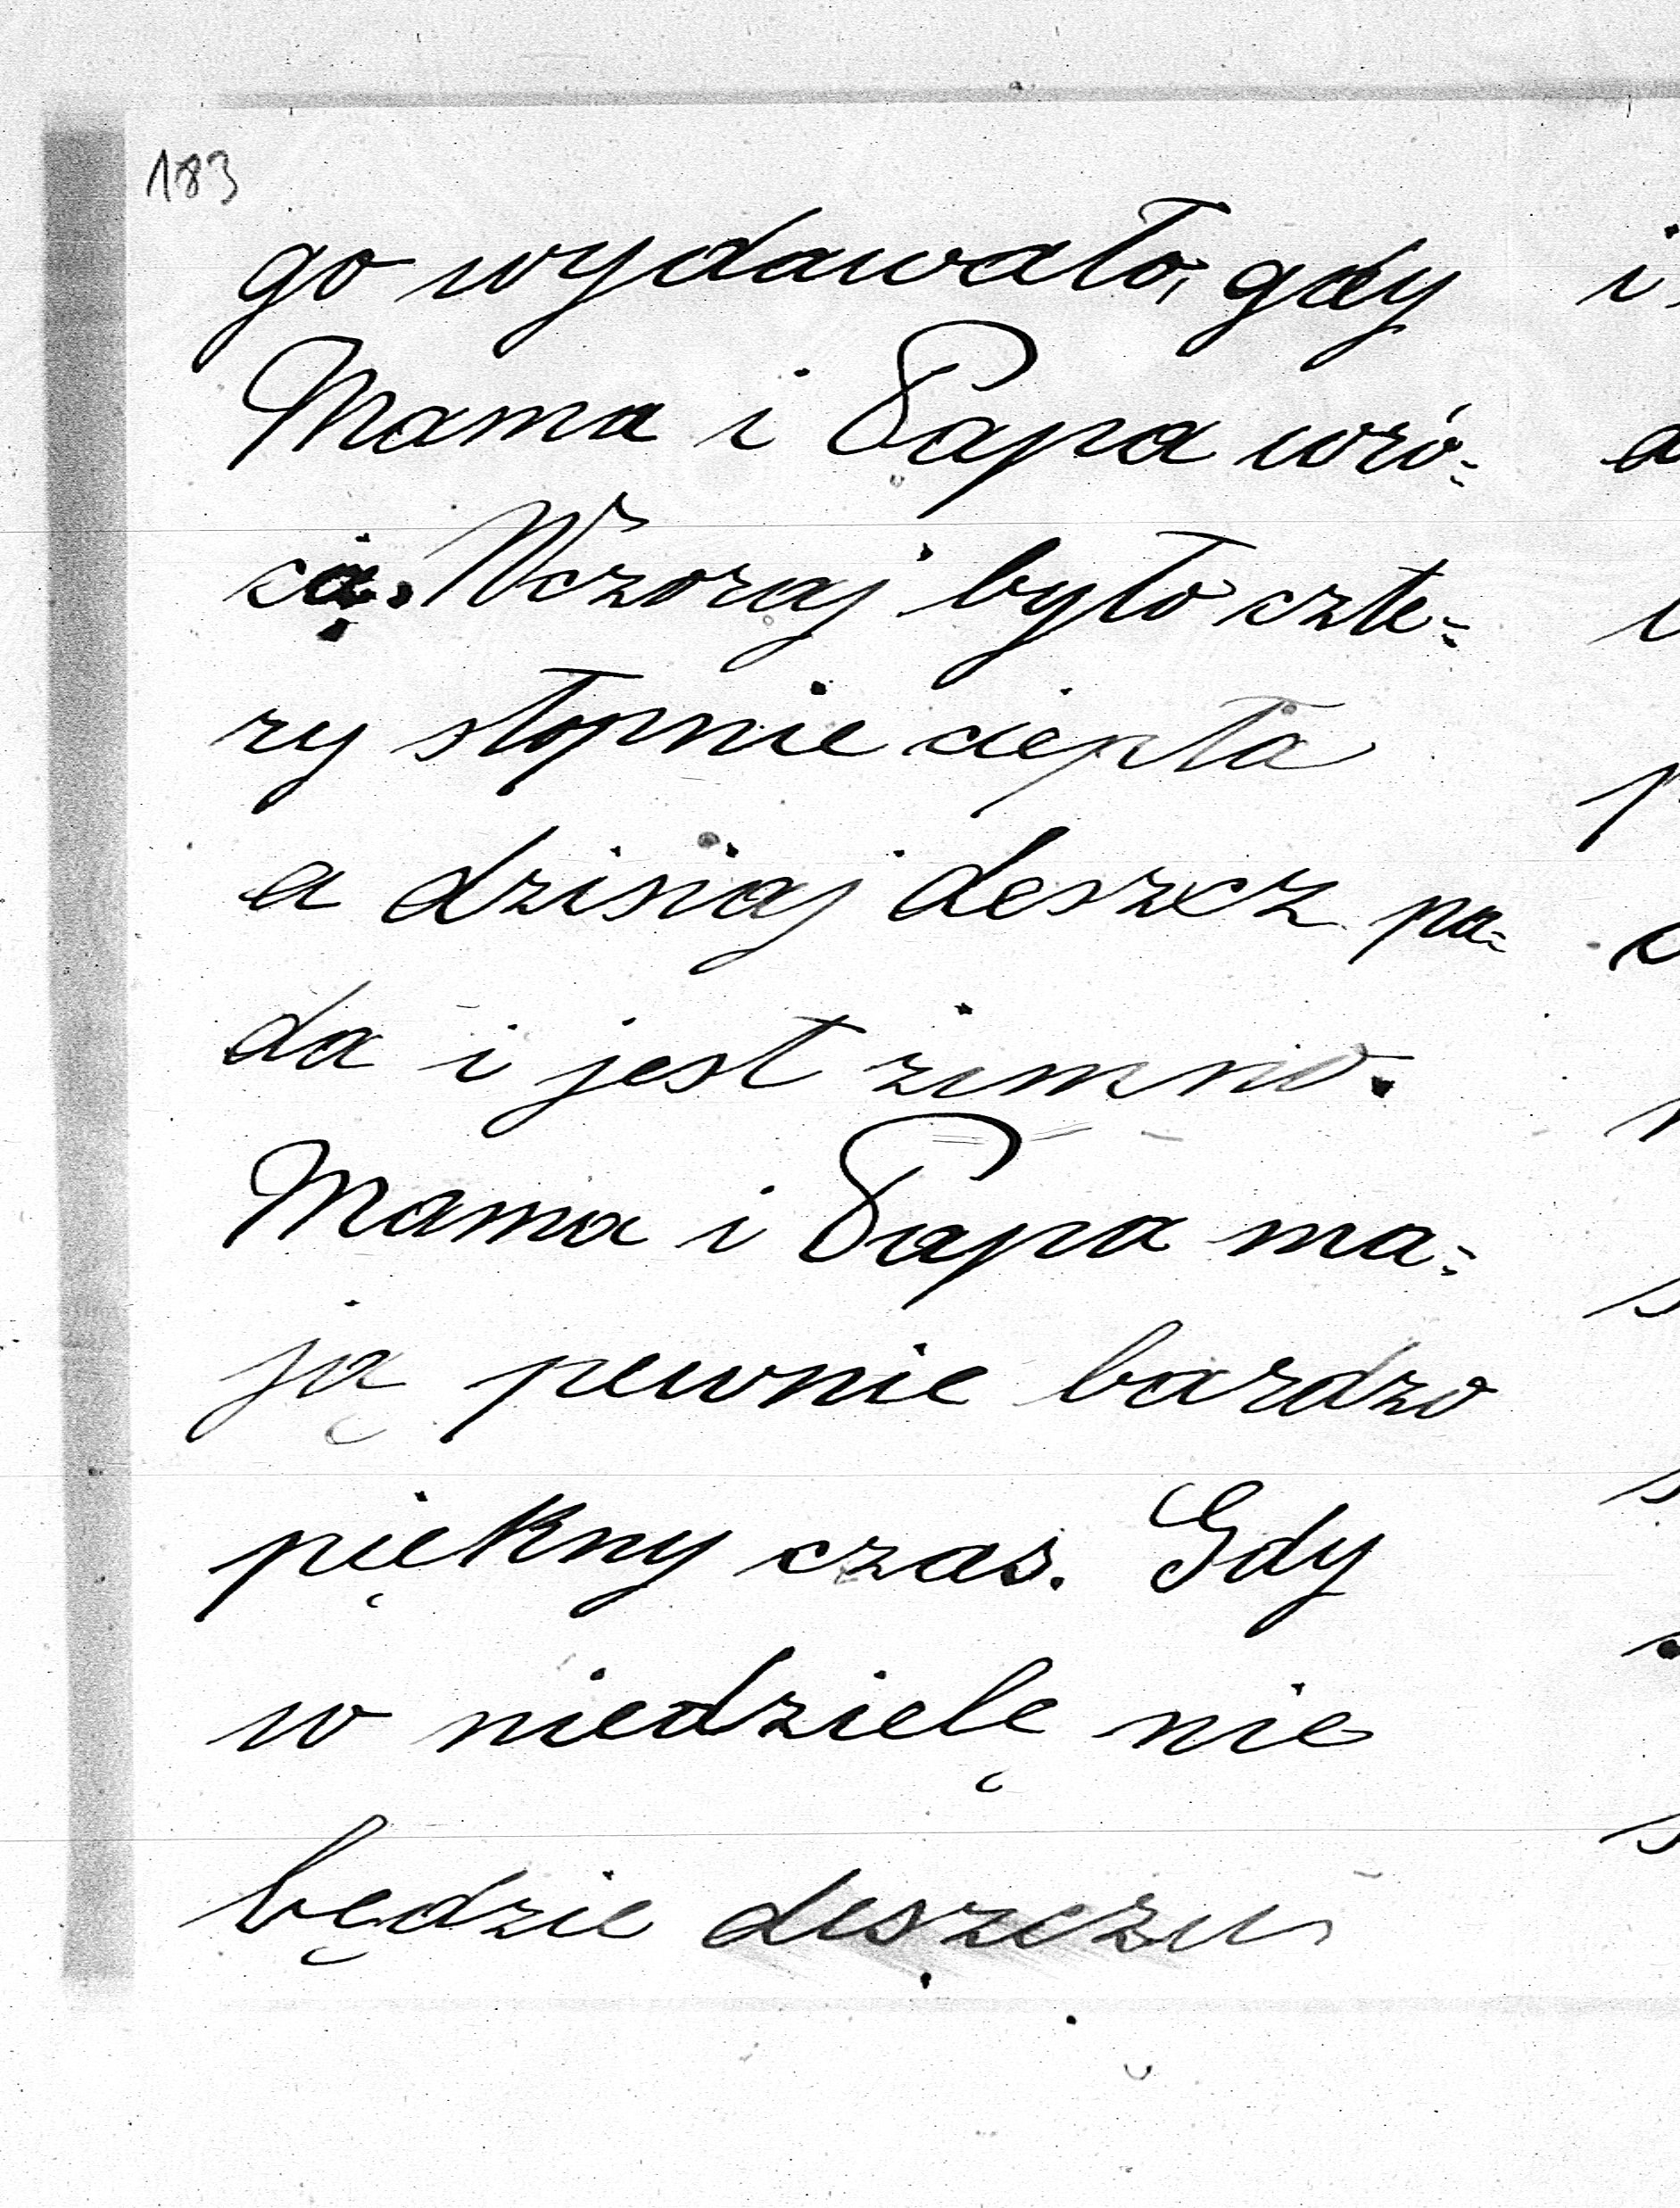 183
go wydawało, gdy
Mama i Papa wró=
cą. Wczoraj było czte=
ry stopnie ciepła
a dzisiaj deszcz pa=
da i jest zimno.
Mama i Papa ma=
ją pewnie bardzo
piękny czas. Gdy
w niedzielę nie
będzie deszczu